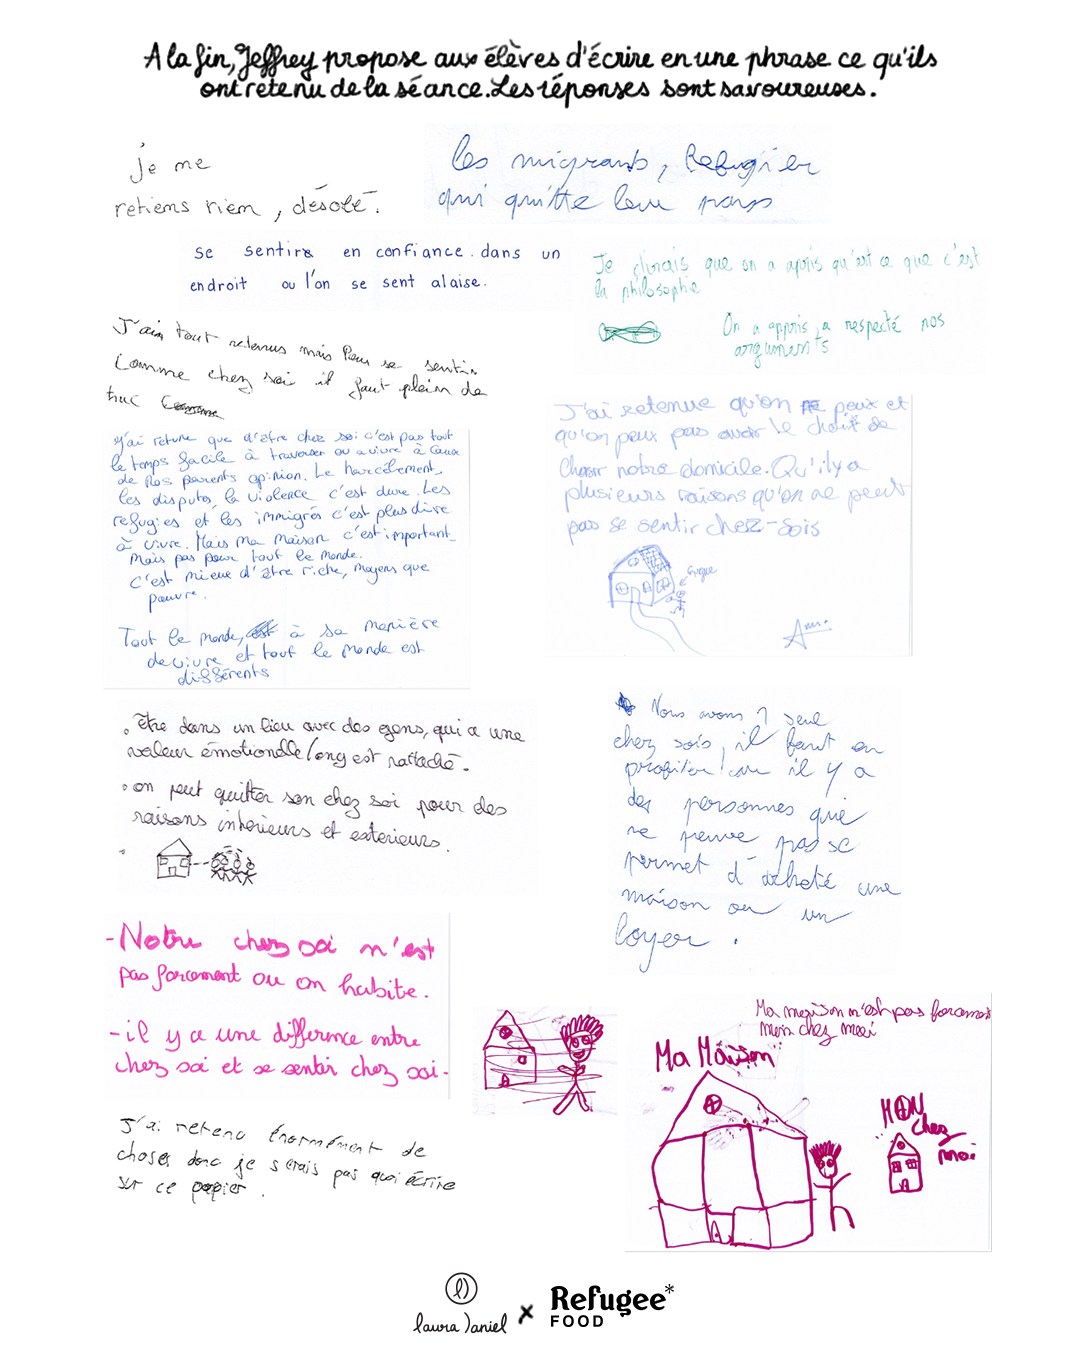 A la fin, Jeffrey propose aux élèves d'écrire en une phrase ce qu'ils
ont retenu de la séance. Les réponses sont savoureuses.
je me
retiens rien, désolé.
les migrants, Refugier
qui quitte leur pays
se sentire en confiance. dans un
endroit ou l'on se sent alaise.
Je dirais que on a appris qu'est ce que c'est
la philosophie
On a appris a respecté nos
arguments
J'ai tout retenus mais Pour se sentir
Comme chez soi il faut plein de
truc
J'ai retenue qu'on peux et
qu'on peux pas avoir le choix de
Choisir notre domicile. Qu'il y a
plusieurs raisons qu'on ne peut
pas se sentir chez-sois
j'ai retenue que d'être chez soi c'est pas tout
le temps facile à traverser ou a vivre à
de nos parents opinion. Le harcèlement,
les disputs, la violence c'est dure. Les
refugies et les immigrés c'est plus dure
à vivre. Mais ma maison c'est important
mais pas pour tout le monde.
C'est mieux d'être riche, moyens que
pauvre.
Tout le monde, à sa manière
de vivre et tout le monde est
différents
• être dans un lieu avec des gens, qui a une
valeur émotionelle/on y est rattaché.
• on peut quitter son chez soi pour des
raisons intérieurs et exterieurs.
•
Nous avons 1 seul
chez sois, il faut en
profiter! car il y a
des personnes qui
ne peuve pas se
permet d'acheté une
maison ou un
loyer.
- Notre chez soi n'est
pas forcement ou on habite.
- il y a une différence entre
chez soi et se sentir chez soi.
Ma maison n'est pas forcement
mon chez moi
Ma Maison
MON
chez
moi
J'ai retenu énormément de
choses donc je serais pas quoi écrire
sur ce papier.
laura daniel x Refugee*
FOOD